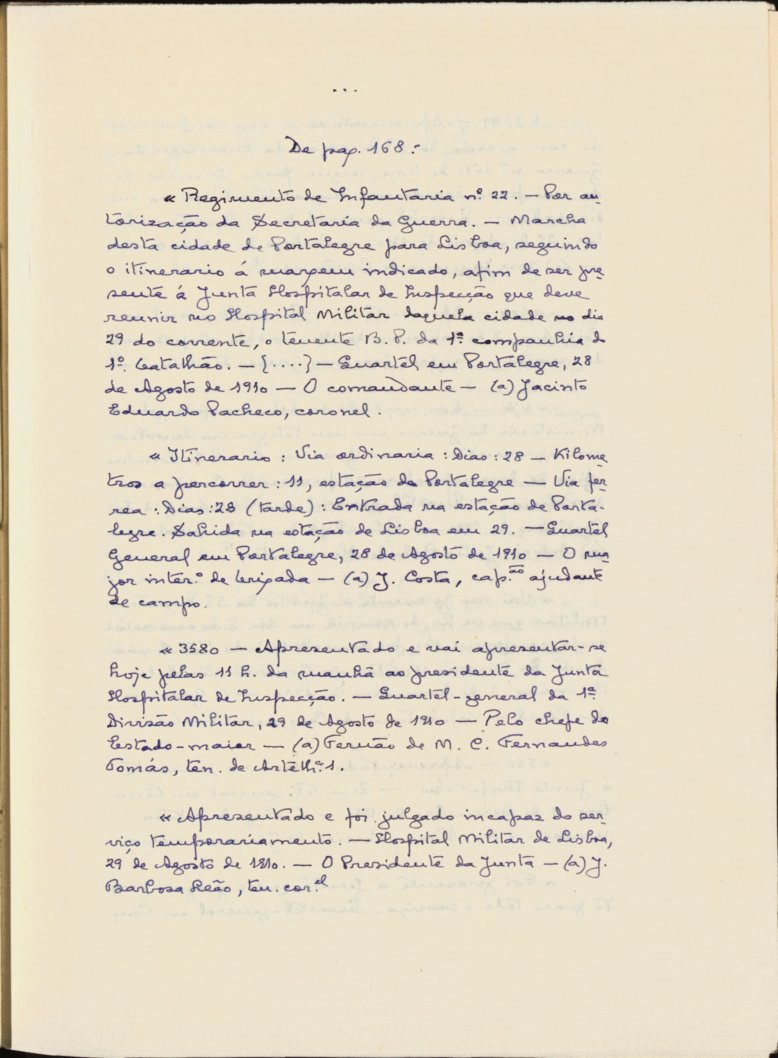 ...
De pag. 168:
« Regimento de Infantaria nº. 22. — Por au-
torização da Secretaria da Guerra. — Marcha
desta cidade de Portalegre para Lisboa, seguindo
o itinerario á margem indicado, afim de ser pre-
sente á Junta Hospitalar de Inspecção que deve
reunir no Hospital Militar daquela cidade no dia
29 do corrente, o tenente B. P. da 1ª companhia do
1º. batalhão. — {....} — Quartel em Portalegre, 28
de Agosto de 1910 — O comandante — (a) Jacinto
Eduardo Pacheco, coronel.
« Itinerario : Via ordinaria : Dias : 28 — Kilome-
tros a percorrer : 11, estação de Portalegre — Via fer-
rea : Dias : 28 (tarde) : Entrada na estação de Porta-
legre. Sahida na estação de Lisboa em 29. — Quartel
General em Portalegre, 28 de Agosto de 1910 — O ma-
jor inter.º de brigada — (a) J. Costa, cap.ᵃᵒ ajudante
de campo.
« 3580 — Apresentado e vai apresentar-se
hoje pelas 11 h. da manhã ao presidente da Junta
Hospitalar de Inspecção. — Quartel-general da 1ª
Divisão Militar, 29 de Agosto de 1910 — Pelo chefe do
Estado-maior — (a) Fernão de M. C. Fernandes
Tomás, ten. de Artelhª. 1.
« Apresentado e foi julgado incapaz do ser-
viço temporariamento. — Hospital Militar de Lisboa,
29 de Agosto de 1910. — O Presidente da Junta — (a) J.
Barbosa Leão, ten. cor.ᵉˡ